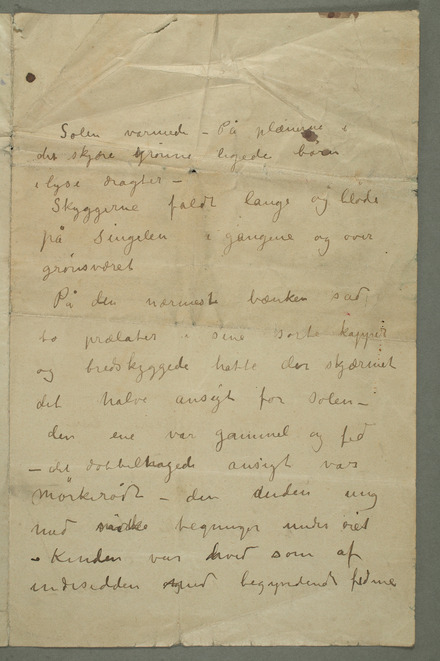 Solen varmede – På plænerne i
det skjøre grønne legede børn
i lyse dragter –
Skyggerne faldt lange og bløde
på Singelen i gangene og over
grønsværet
På den nærmeste bænken sad
to prælater i sine sorte kapper
og bredskyggede hatte der skjærmet
det halve ansigt for solen –
den ene var gammel og fed
– det dobbelthagede ansigt var
mörkerødt – den anden ung
med bøgninger under øiet
– Kinden var hvid som af
indesidden med begyndende fedme